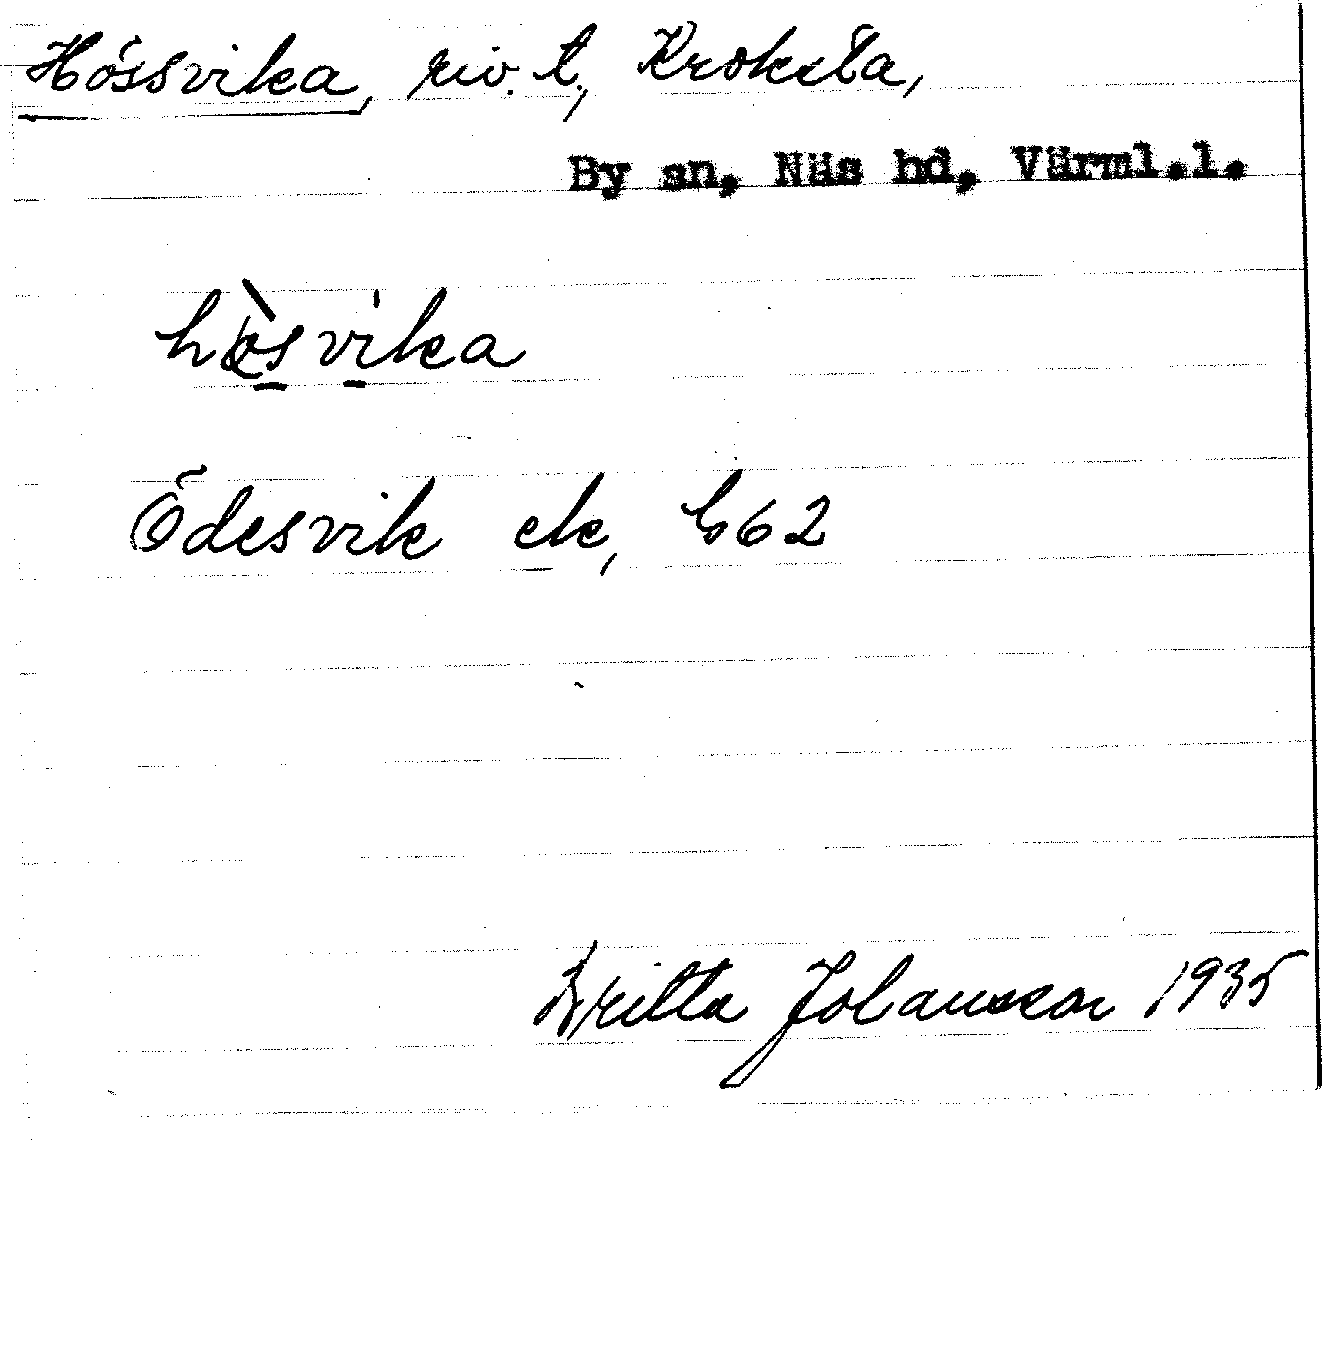 Hössvika, riv. t., Kroksta,
By sn, Näs hd, Värml.l.
hösvika
Ödesvik ek, G62
Britta Johansson 1935